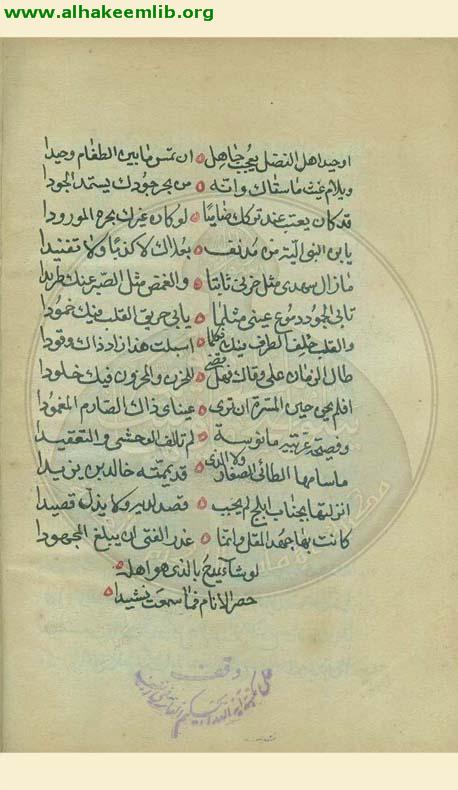 www.alhakeemlib.org
اوحيد اهل الفضل يعجب جاهل ان تمس مابين الطغام وحيدا
ويلام غيث ماستقاك وانه من بحر جودك يستمد الجودا
قد كان يعتب عند تركك ضاميا لو كان غيرك بحره المورودا
يابن النبي الية من مدنف بعلاك لا كذبا ولا تفنيدا
مازال سهدي مثل حزني ثابتا والغمض مثل الصبر عنك طريدا
تابى الجمود دموع عيني مثلما يابى حريق القلب فيك خمودا
والقلب حلف الطرف فيك فكلما اسبلت هذا زاد ذاك وقودا
طال الزمان على لقاك فهل قضى للحزن والمحزون فيك خلودا
افلم يحن حين المسرة ان ترى عيناي ذاك الصارم المغمودا
وفصيحة عربية مانوسة لم تالف الوحشي والتعقيدا
ماسامها الطائي الصغار ولا الذي قد يمته خالد بن يزيدا
انزلتها بجناب ابلج لم يخب قصد لديه ولا يذل قصيدا
كانت بها جهد المقل وانما عذر الفتى ان يبلغ المجهودا
لو شاء يمدح بالذي هو اهله
حصر الانام فما سمعت نشيدا
وقف